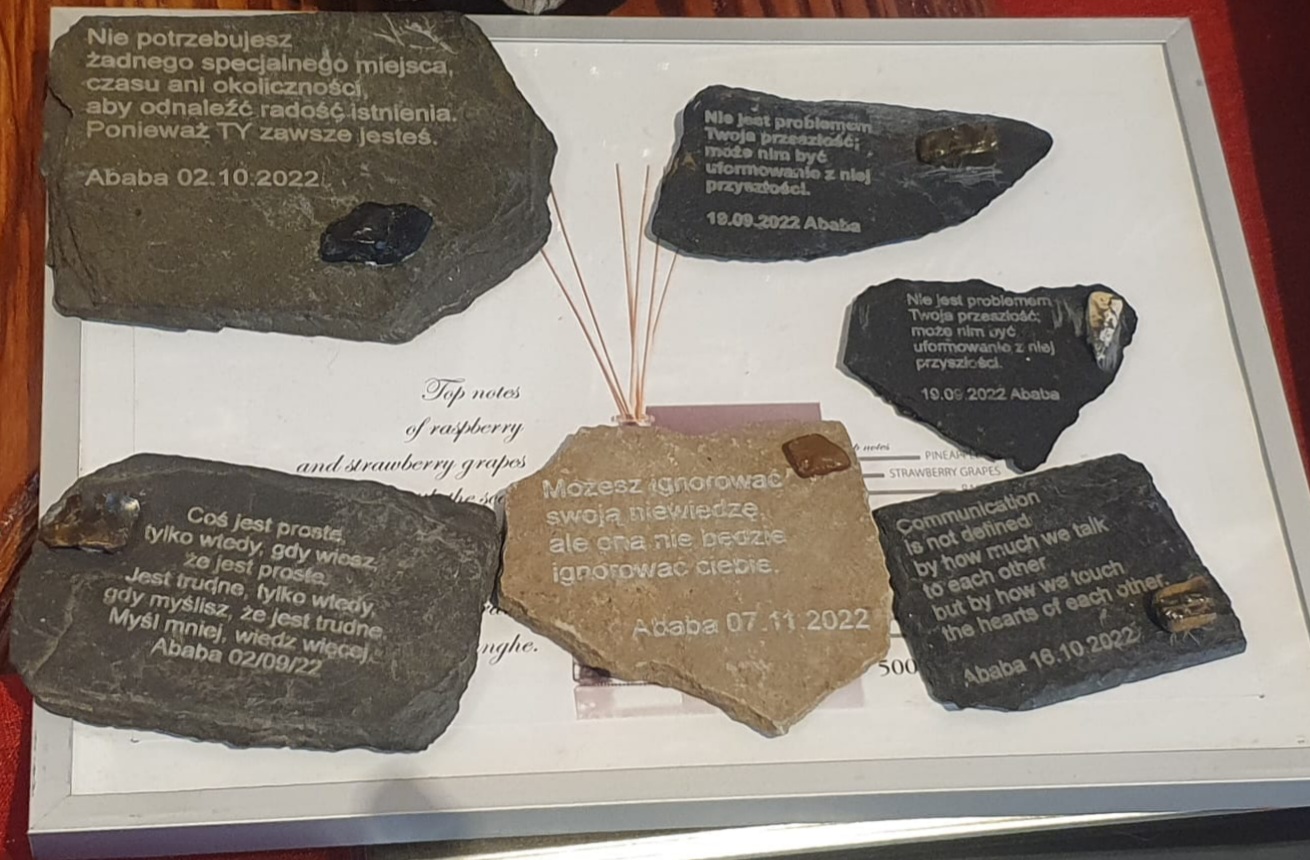 Nie potrzebujesz
żadnego specjalnego miejsca,
czasu ani okoliczności,
aby odnaleźć radość istnienia.
Ponieważ TY zawsze jesteś.
Ababa 02.10.2022
Nie jest problemem
Twoja przeszłość;
może nim być
uformowanie z niej
przyszłości.
19.09.2022 Ababa
Nie jest problemem
Twoja przeszłość;
może nim być
uformowanie z niej
przyszłości.
19.09.2022 Ababa
Top notes
of raspberry
and strawberry grapes
the
nghe.
notes
PINEAPPLE
STRAWBERRY GRAPES
500
Coś jest proste,
tylko wtedy, gdy wiesz,
że jest proste.
Jest trudne, tylko wtedy,
gdy myślisz, że jest trudne.
Myśl mniej, wiedz więcej.
Ababa 02/09/22
Możesz ignorować
swoją niewiedzę,
ale ona nie będzie
ignorować ciebie.
Ababa 07.11.2022
Communication
is not defined
by how much we talk
to each other
but by how we touch
the hearts of each other.
Ababa 16.10.2022